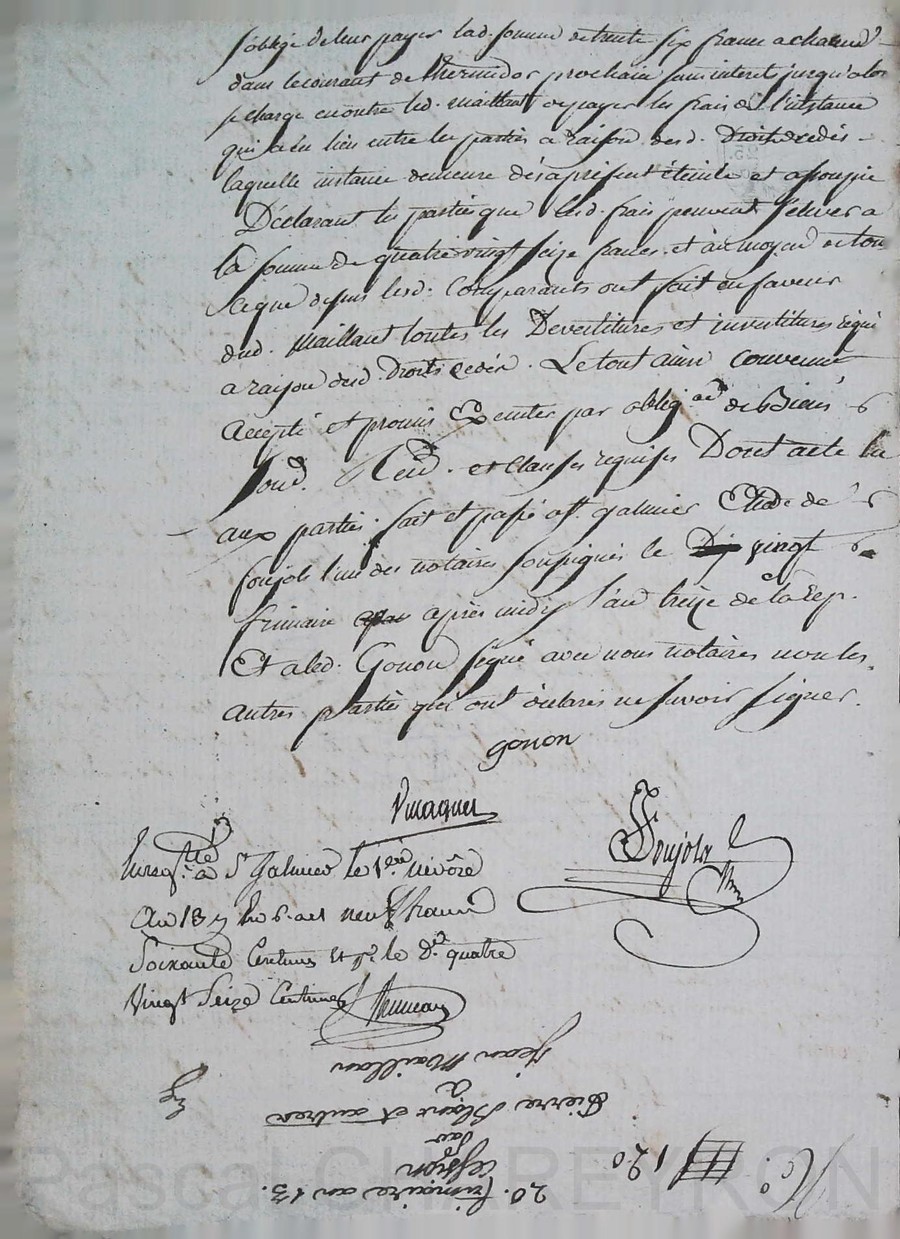 s'oblige de leur payer lad. somme de trente six francs a chacun
dans le courant de thermidor prochain sans interets jusqu'alors
se charge en outre led. maillant de payer les frais de l'instance
qui a eu lieu entre les parties a raison desd. Droits cedés
laquelle instance demeure dés à présent éteinte et assoupie
Déclarant les parties que lesd. frais peuvent s'élever a
la somme de quatre vingt seize francs. et au moyen de tout
ce que dessus lesd. Comparants ont fait en faveur
dud. Maillant toutes les Devestitures et investitures requi
a raison desd. Droits cedés. Le tout ainsi convenu
Accepté et promis Exécuter par oblig.on de Biens
Soud. Rend. et clauses requises Dont acte lu
aux parties. fait et passé a st. galmier Etude de
soujols l'un des notaires soussignés le vingt
frimaire après midy l'an treize de la Rep.
Et a led. Gonon signé avec nous notaires non les
autres parties qui ont déclaré ne savoir signer.
gonon
Soujols
Enreg.tré à St Galmier le 1.er nivôse
An 13 neuf francs
Soixante Centimes et p.r le d.e quatre
Vingt Seize Centimes
Jean Maillan
à
Pierre et autres
par
Cession
20. frimaire an 13.
N.o 120
Pascal CHAREYRON